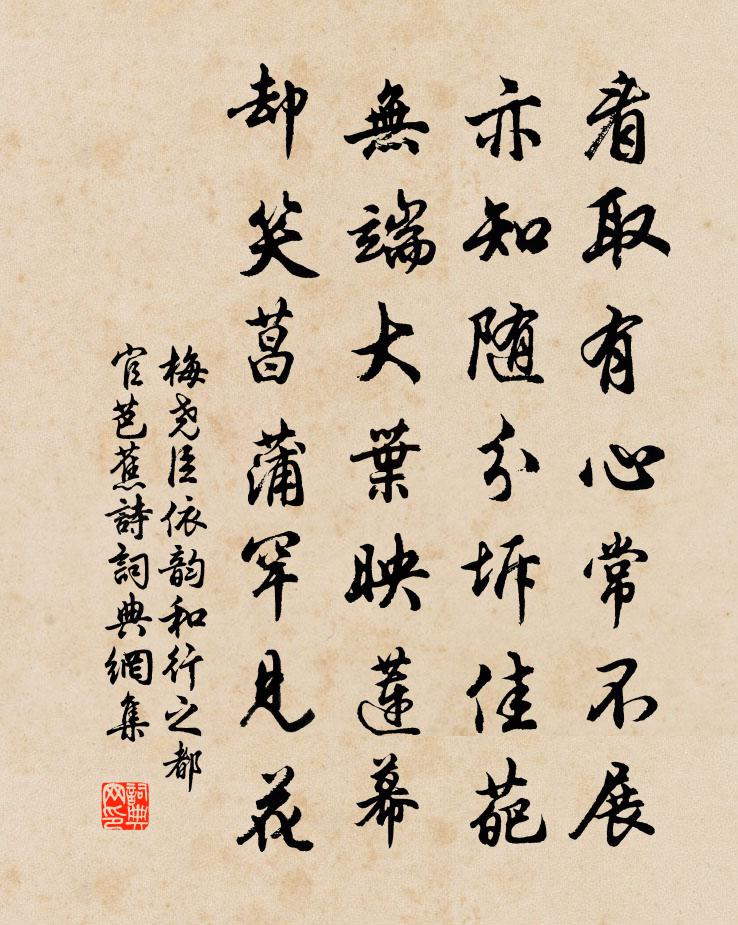 看取有心常不展
亦知随分坼佳葩
無端大葉映蓮幕
却笑菖蒲罕見花
梅尧臣依韵和行之都
官芭蕉詩詞典網集
詞典
网印